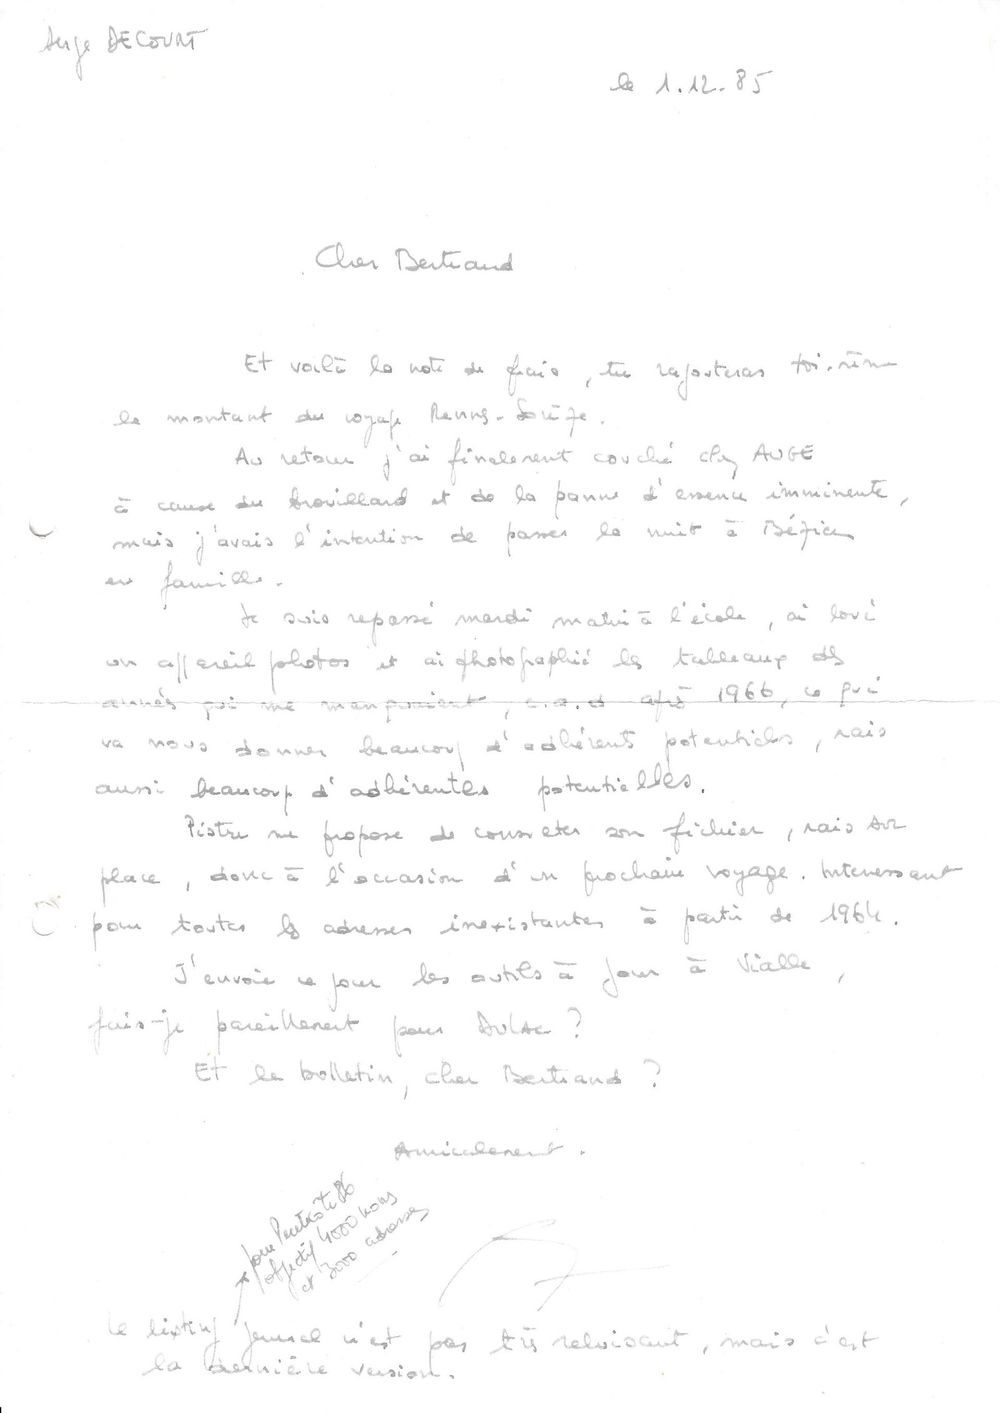 Serge DECOURT
le 1.12.85
Cher Bertrand
Et voilà la note de frais, tu rajouteras toi-même
le montant du voyage Rennes-Sorèze.
Au retour j'ai finalement couché chez AUGE
à cause du brouillard et de la panne d'essence imminente,
mais j'avais l'intention de passer la nuit à Béziers
en famille.
Je suis repassé mardi matin à l'école, ai loué
un appareil photos et ai photographié les tableaux des
années qui me manquaient, c.a.d après 1966, ce qui
va nous donner beaucoup d'adhérents potentiels, mais
aussi beaucoup d'adhérentes potentielles.
Pistre me propose de consulter son fichier, mais sur
place, donc à l'occasion d'un prochain voyage. Interessant
pour toutes les adresses inexistantes à partir de 1964.
J'envoie ce jour les outils à jour à Vialle,
fais-je pareillement pour ?
Et le bulletin, cher Bertrand ?
Amicalement.
pour Pentecôte 86
objectif 4000 noms
et 3000 adresses
le listing n'est pas très reluisant, mais c'est
la dernière version.